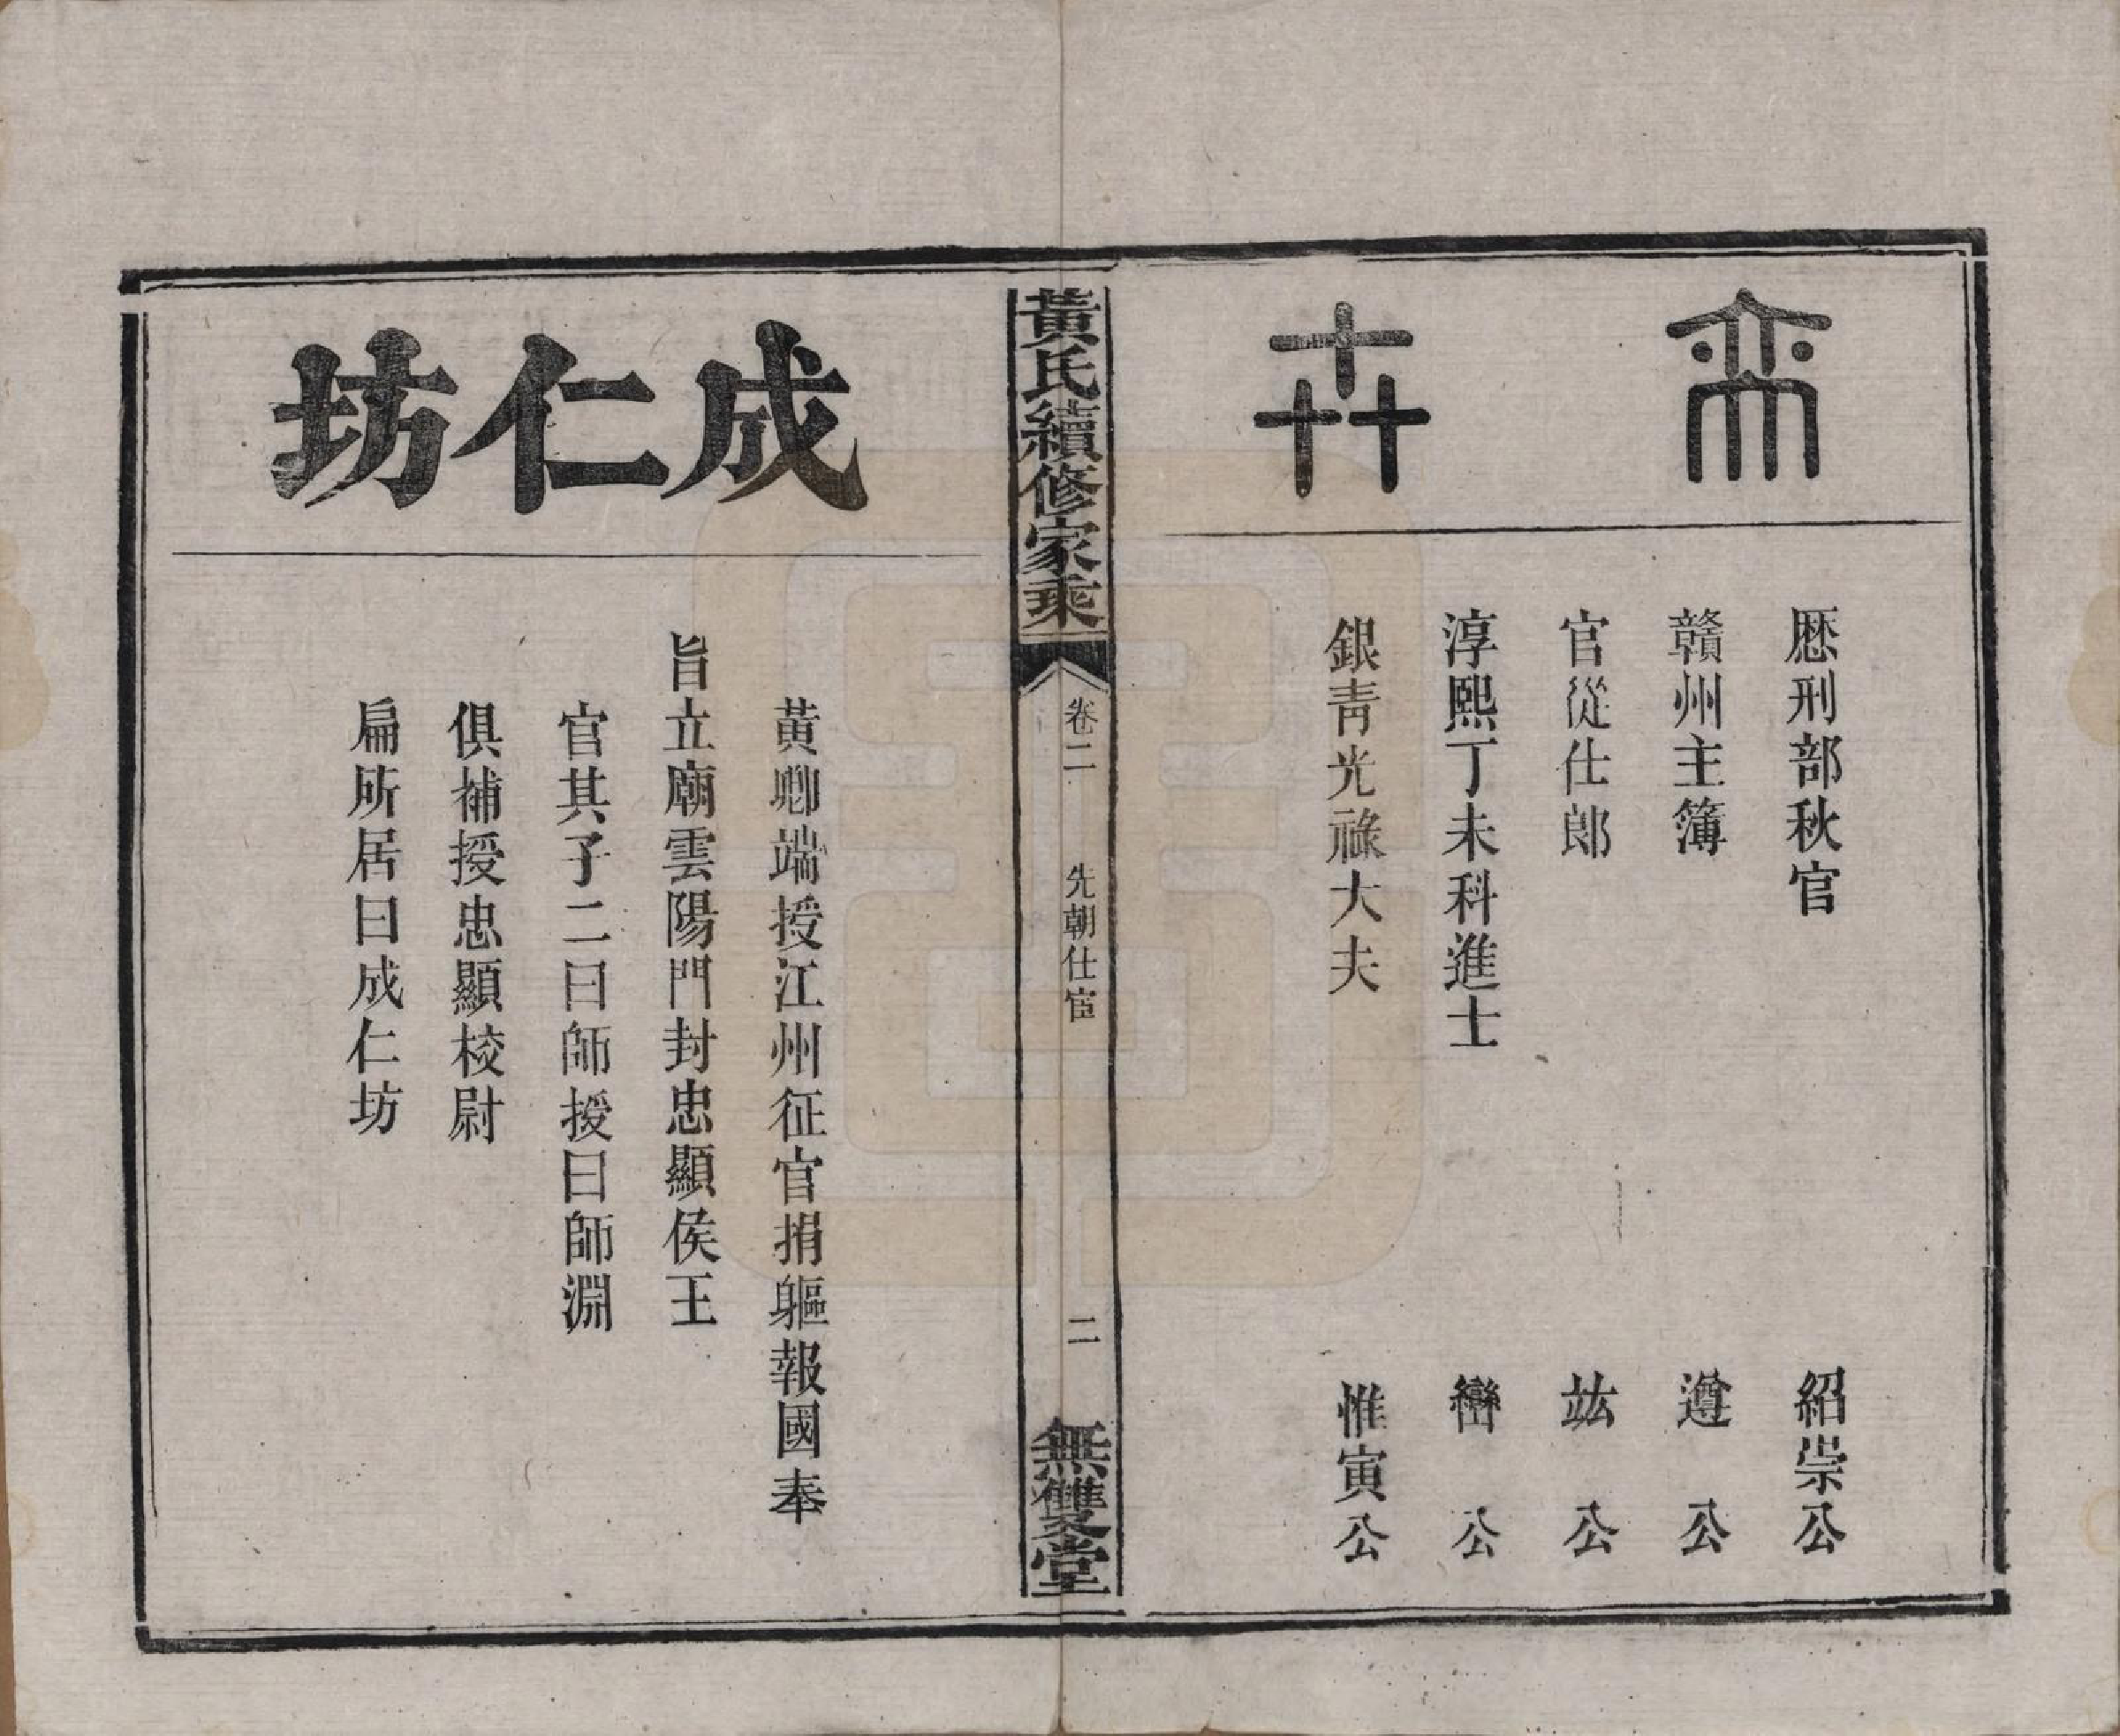 厯刑部秋官　紹崇公
贛州主簿　遵公
官從仕郎　竑公
淳熙丁未科進士　公
銀青光祿大夫　惟寅公
黃氏續修家乘
卷二
先朝仕宦
二
無雙堂
成仁坊
黃卿端授江州征官捐軀報國奉
旨立廟雲陽門封忠顯侯王
官其子二曰師授曰師淵
俱補授忠顯校尉
扁所居曰成仁坊